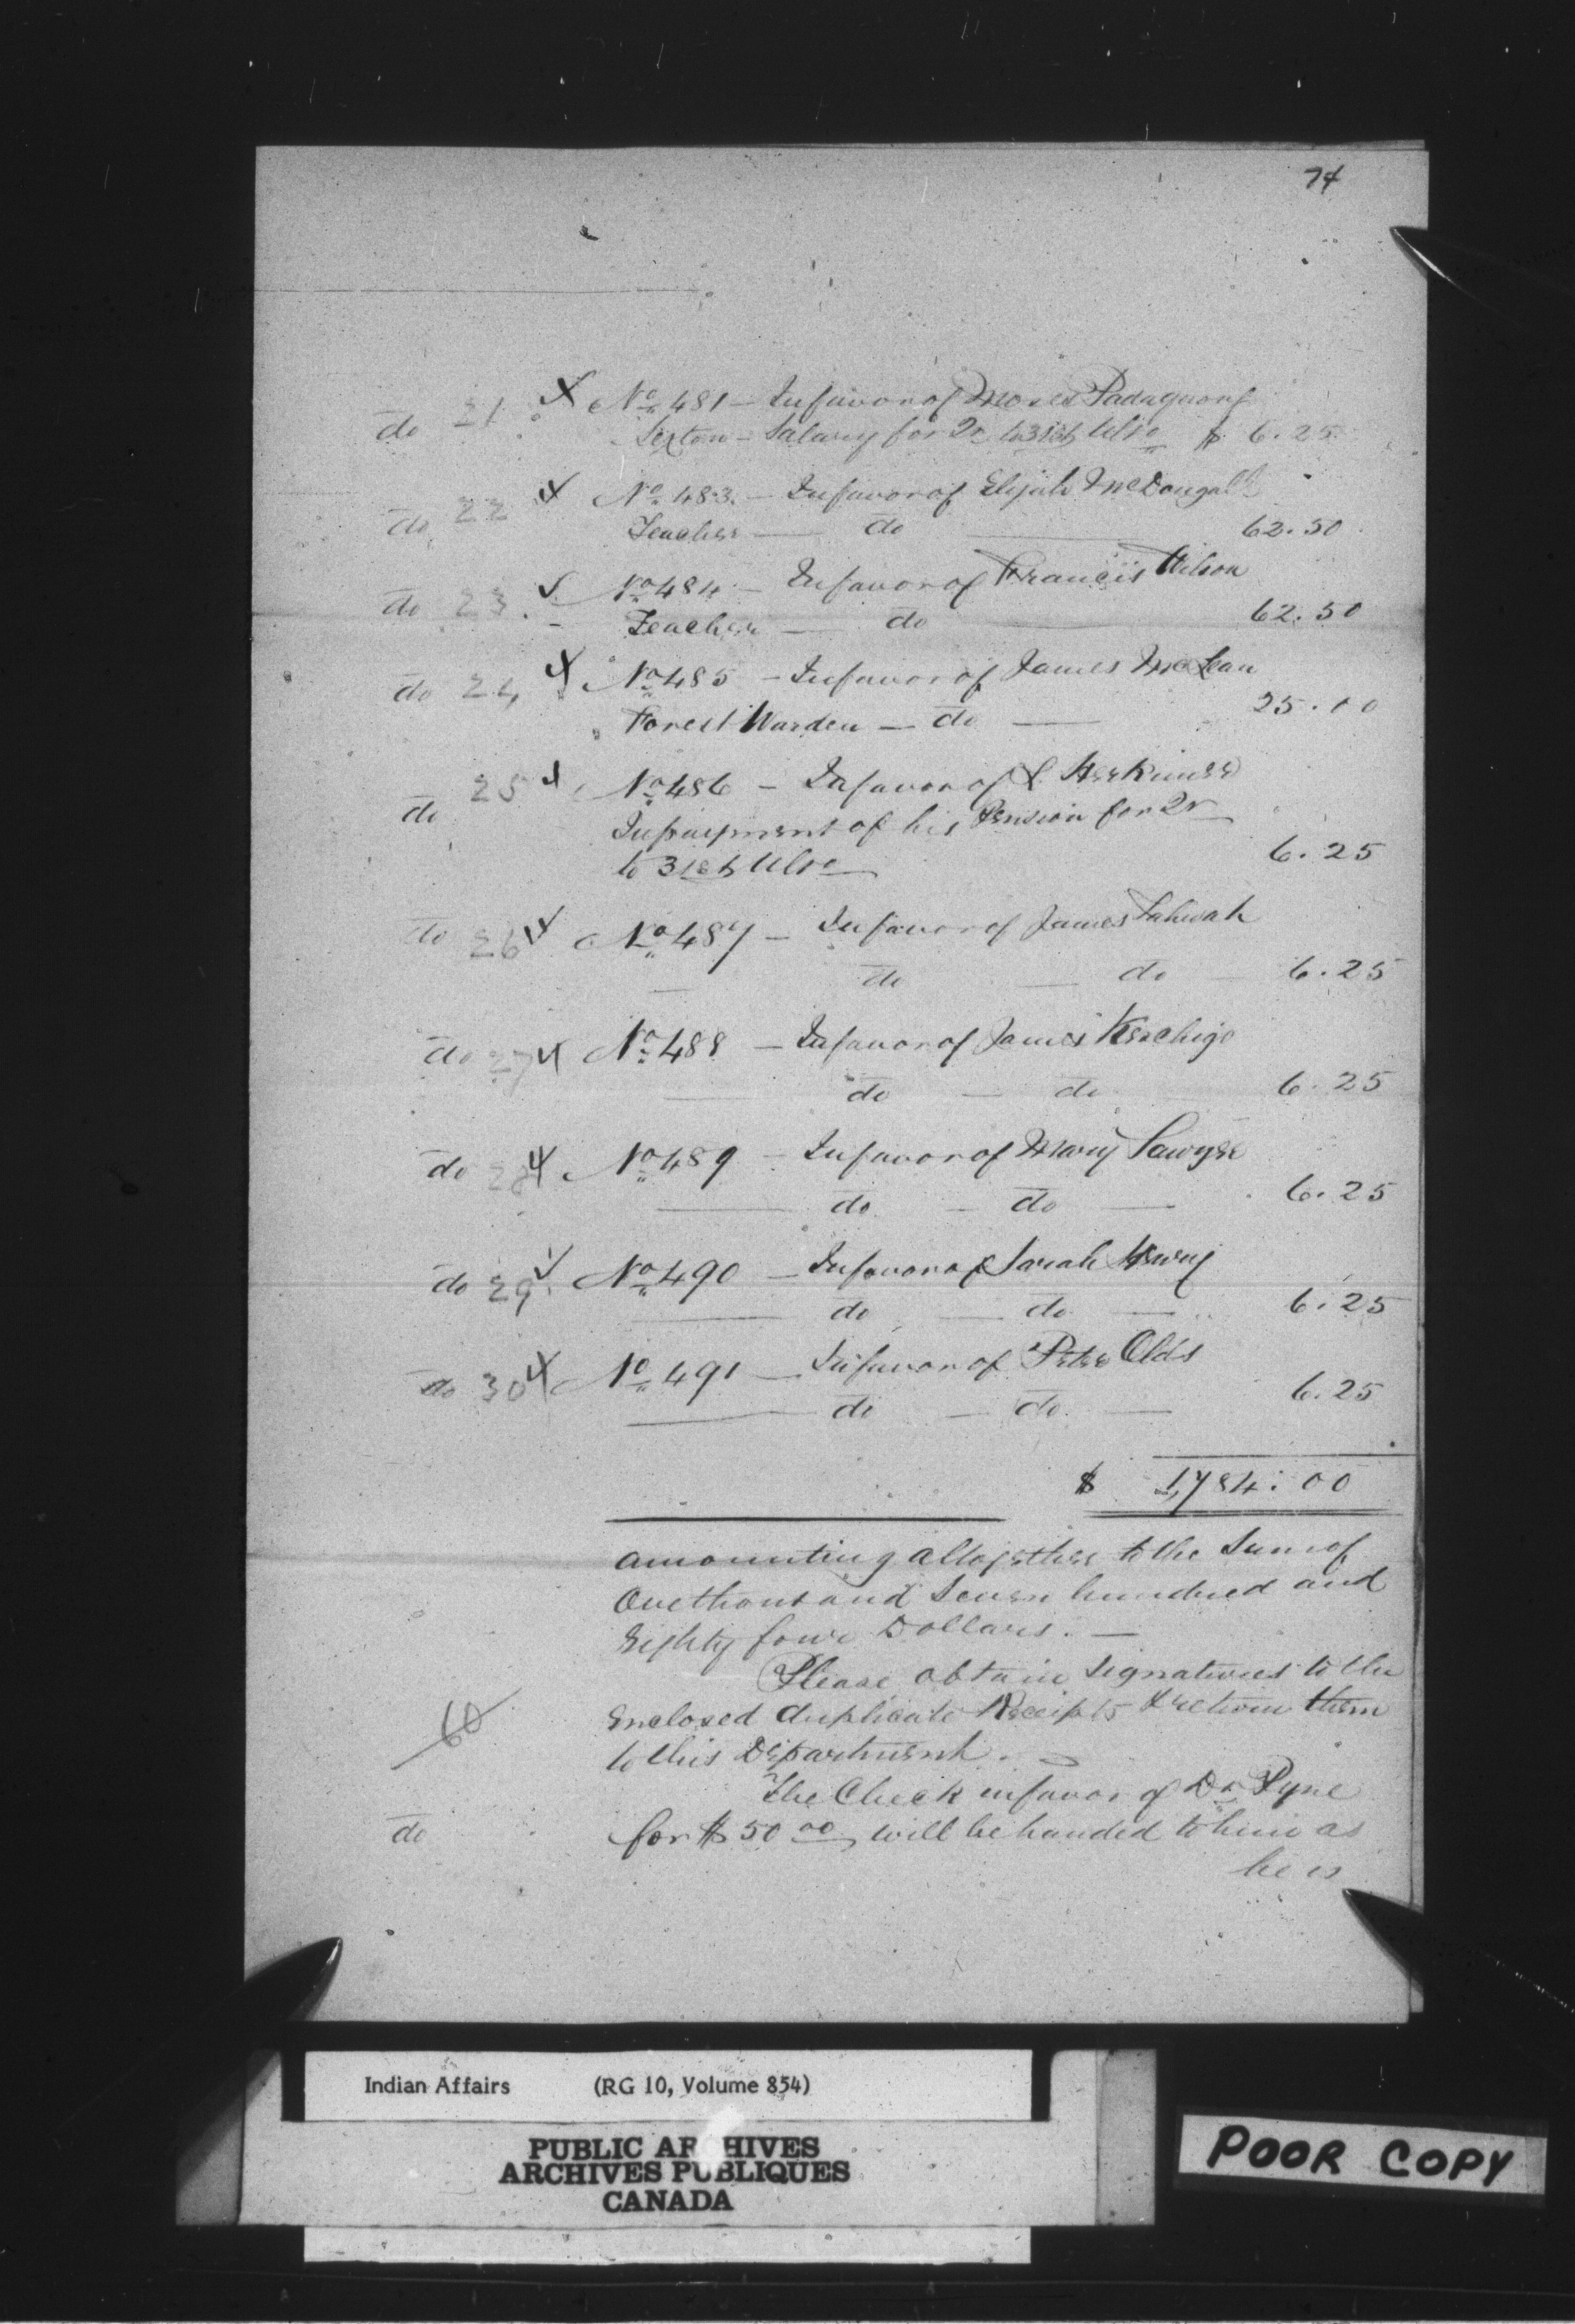 74
do 21 No 481 — In favor of Moses Padaquong
Sexton — Salary for Qr to 31st Ulto $ 6.25
do 22 No 483. — In favor of Elijah McDougall
Teacher — do — 62.50
do 23. No 484 — In favor of Francis Wilson
Teacher — do — 62.50
do 24 No 485 — In favor of James McLean
Forest Warden — do — 25.00
do 25 No 486 — In favor of L. Herkimer
In payment of his Pension for Qr
to 31st Ulto 6.25
do 26 No 487 — In favor of James Tahwah
— do — do — 6.25
do 27 No 488 — In favor of James Keechigo
— do — do 6.25
do 28 No 489 — In favor of Mary Sawyer
— do — do — 6.25
do 29. No 490 — In favor of Sarah Henry
— do — do — 6.25
do 30 No 491 — In favor of Peter Olds
— do — do — 6.25
$ 1,784.00
amounting altogether to the Sum of
One thousand Seven hundred and
Eighty four Dollars. —
Please obtain Signatures to the
60 Enclosed duplicate Receipts & return them
to this Department. —
The Check in favor of Dr Pyne
do for $50 00 will be handed to him as
he is
Indian Affairs (RG 10, Volume 854)
PUBLIC ARCHIVES
ARCHIVES PUBLIQUES
CANADA
POOR COPY